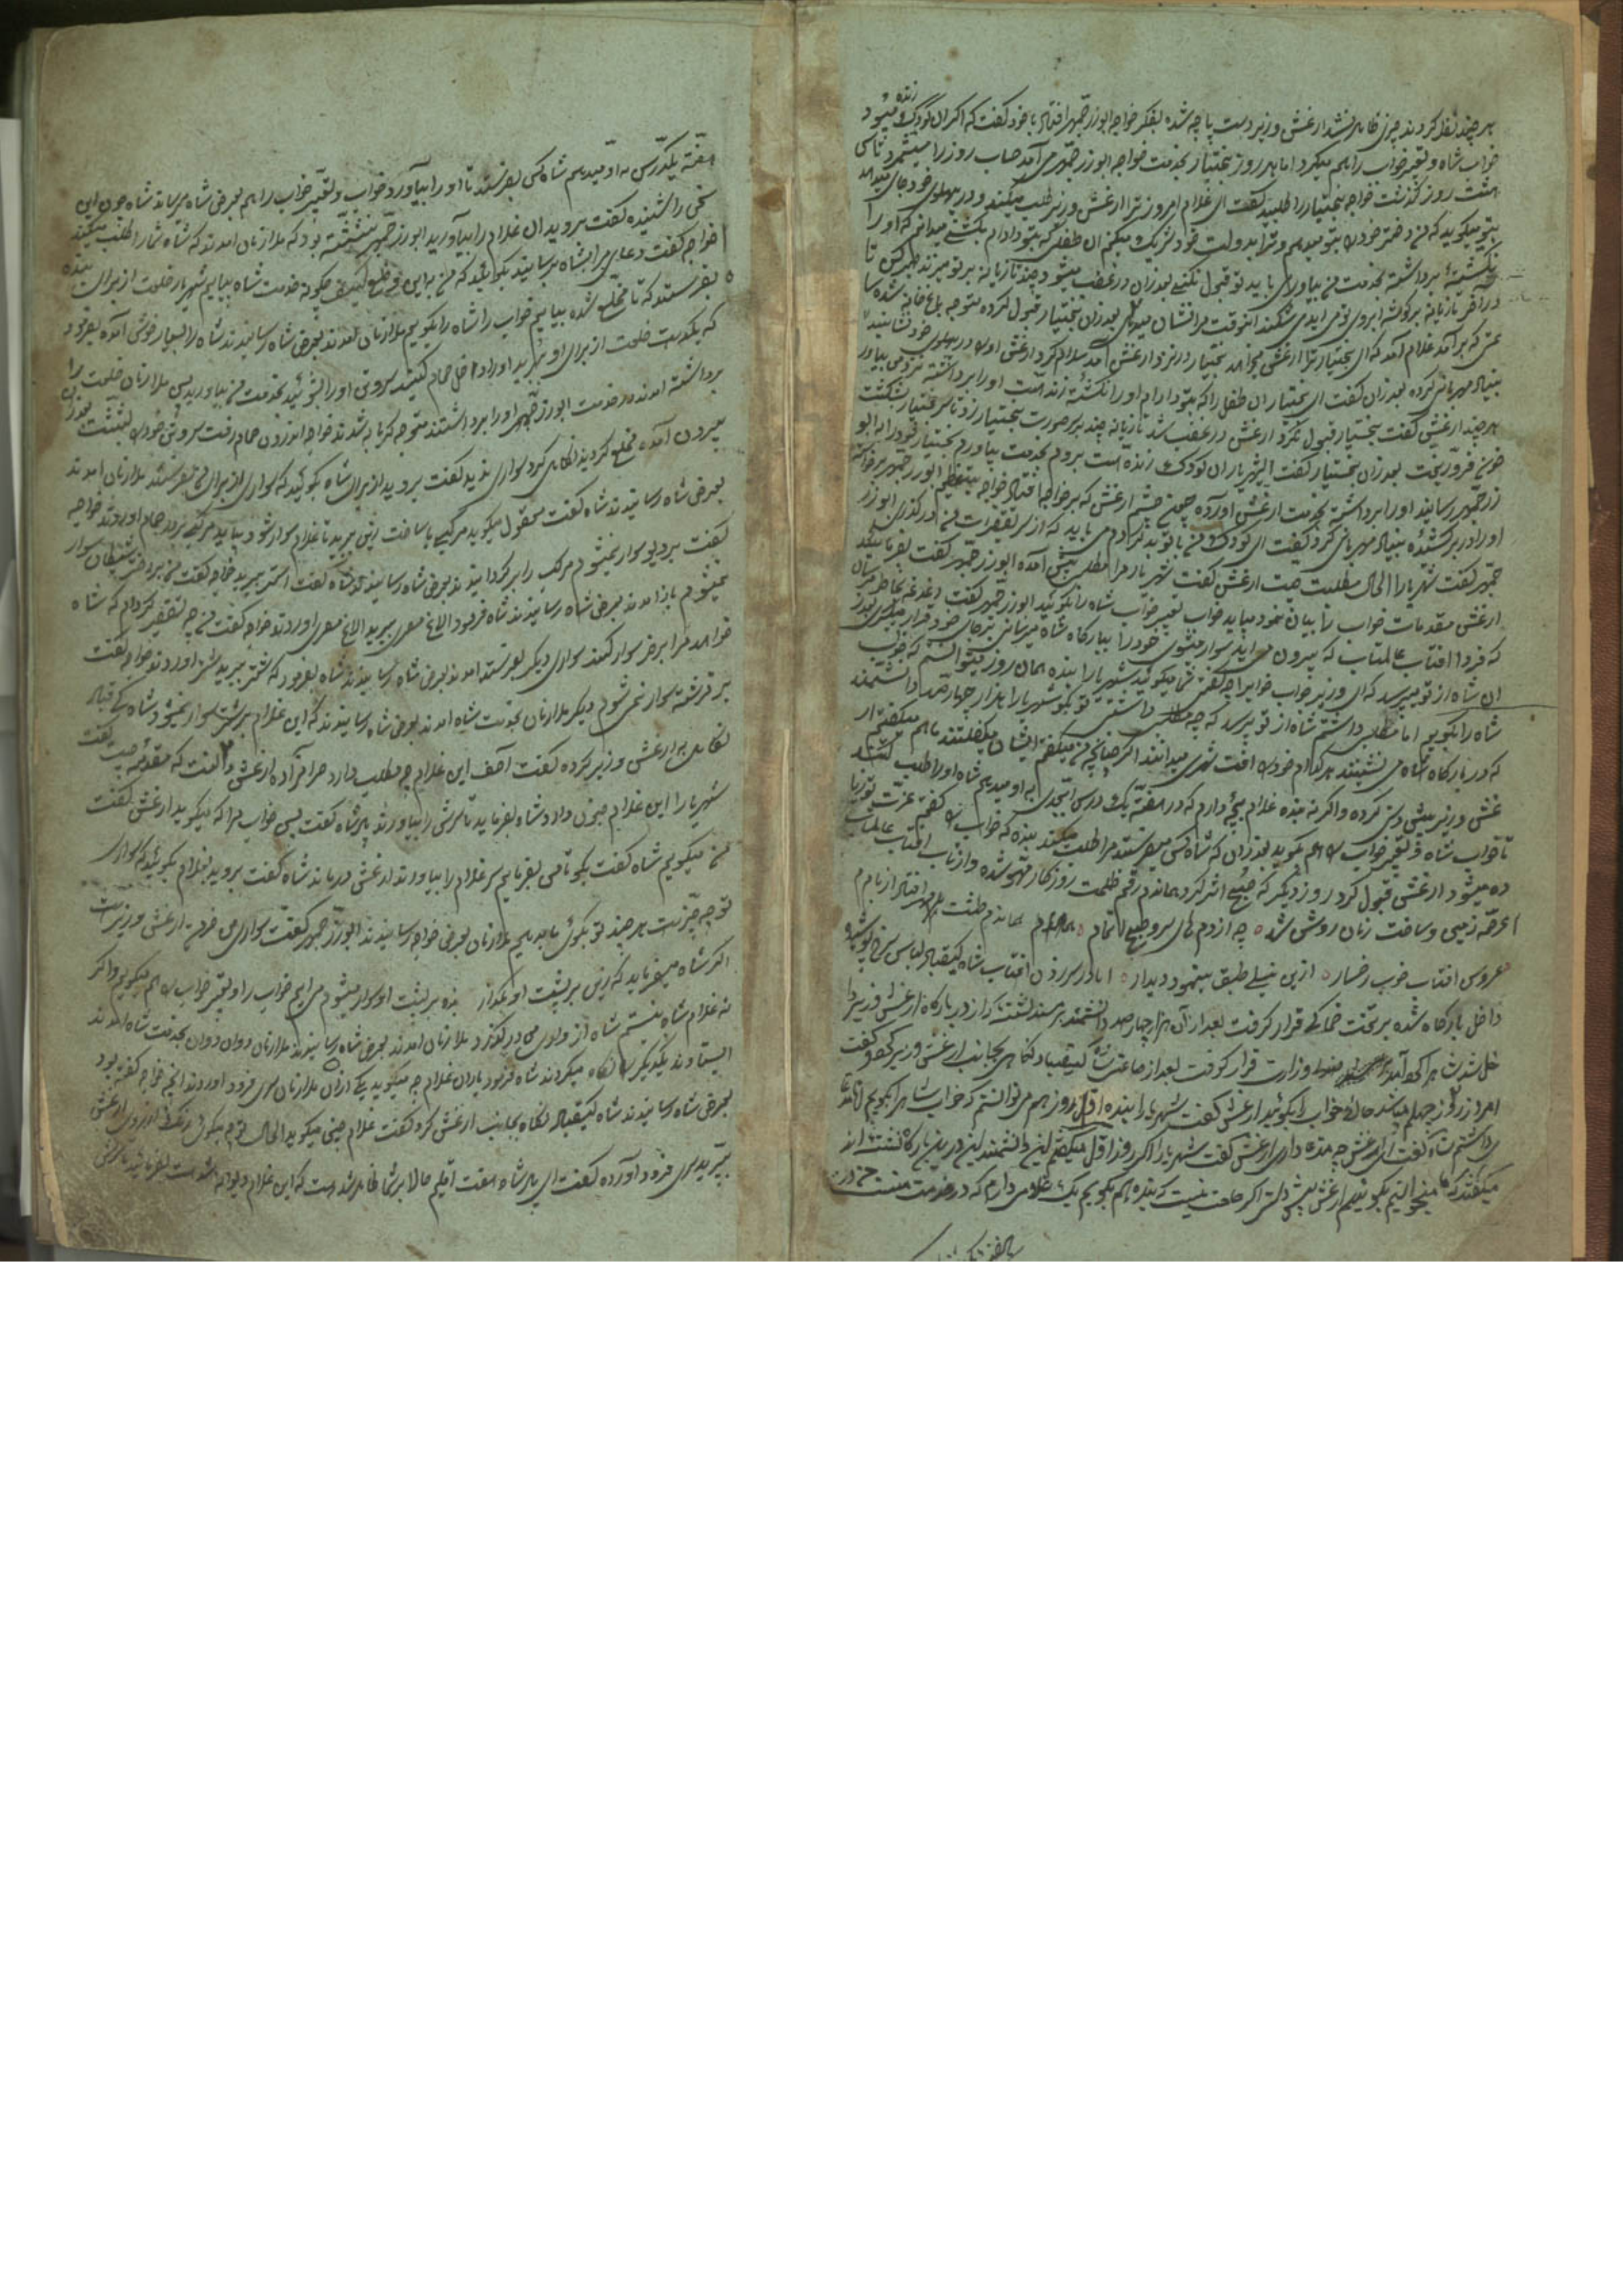 هر چند نقل کردند چیزی ظاهر نشد ارغش وزیر دست پاچه شده بفکر خواجه ابوزرجمهر افتاد با خود گفت که اگر آن کودک زنده میبود
خواب شاه و تعبیر خواب را هم میکرد اما هر روز بختیار بخدمت خواجه ابوزرجمهر می آمد حساب روز را میشمرد تا سی
هفت روز گذشت خواجه بختیار را طلبید گفت ای غلام امروز ترا ارغش وزیر طلب میکند و در پهلوی خود جای میدهد
بتو میگوید که من دختر خود را بتو میدهم و ترا بدولت خود شریک میکنم آن طفلی که بتو دادم بکشی میدانم که او را
نکشتهٔ برداشته بخدمت من بیاوری باید تو قبول نکنی بعد از آن در غضب میشود چند تازیانه بر تو میزند
در آخر تازیانه بر گوشه ابروی تو می آید می شکند آنوقت مرا نشان بعد از آن بختیار قبول کرده متوجه باغ خانه شد
که بر آمد غلام آمد که ای بختیار ترا ارغش میخواهد بختیار در نزد ارغش آمد سلام کرد ارغش او را در پهلوی خود نشانید
بنیاد مهربانی کرده بعد از آن گفت ای بختیار آن طفل را که بتو دادم او را نکشتهٔ زنده است او را برداشته نزد من بیاور
هر چند ارغش گفت بختیار قبول نکرد ارغش در غضب شد تازیانه چند بر صورت بختیار زد تا سر بختیار بشکست
خون فرو ریخت بعد از آن بختیار گفت ای شهریار آن کودک زنده است بروم بخدمت بیاورم بختیار خود را به ابو
زرجمهر رسانید او را برداشته بخدمت ارغش آورده چون چشم ارغش که بر خواجه افتاد خواجه بتعظیم ابوزرجمهر برخواسته
او را در بر کشیده بنیاد مهربانی کرد گفت ای کودک من با تو بد کردم می باید که از سر تقصیرات من در گذری ابوزر
جمهر گفت شهریارا الحال مطلبت چیست ارغش گفت شهریار مرا مطلبی پیش آمده ابوزرجمهر گفت بفرمائید
ارغش مقدمات خواب را بیان نمود میباید خواب تعبیر خواب شاه را بگوئید ابوزرجمهر گفت دغدغه بخاطر مرسان
که فردا آفتاب عالمتاب که بیرون می آید سوار میشوی خود را ببارگاه شاه میرسانی بر جای خود قرار میگیری بعد از
آن شاه از تو میپرسد که ای وزیر خواب مرا چه گفتی شما میگوئید شهریارا بنده همان روز میتوانستم که خواب
شاه را بگویم اما مطلبی داشتم شاه از تو بپرسد که چه مطلبی داشتی تو بگو شهریارا هزار چهارصد دانشمند
که در بارگاه شاه می نشینند هر کدام خود را افت شهری میدانند اگر چنانچه من میگفتم ایشان میگفتند ما هم میگفتیم ار
غش وزیر پیش دستی کرده و اگر نه بنده غلام بچهٔ دارم که در هفتهٔ یک درس ابجدی به او میدهم شاه او را طلب کند
تا خواب شاه و تعبیر خواب را هم بگوید بعد از آن که شاه کس میفرستد مرا طلب میکند بنده که خواب را گفتم عزت تو زیا
ده میشود ارغش قبول کرد روز دیگر که صبح اثر کرد بعالم رقم ظلمت روزگار محو شده و از تاب آفتاب عالمتاب
عرصه زمین و ساحت زمان روشن شد چه از دم های سرو صبح
عروس آفتاب خوب رخسار ازین نیلی طبق بنمود دیدار شاه کیقباد لباس سرخ پوشیده
داخل بارگاه شده بر تخت خاکی قرار گرفت بعد از آن هزار چهارصد دانشمند بر مسند نشستند که از در بارگاه ارغش وزیر دا
خل شد وزارت قرار گرفت بعد از ساعتی شاه کیقباد نگاهی بجانب ارغش وزیر کرد گفت
امروز روز چهلم میباشد خواب را بگوئید ارغش گفت شهریارا بنده اول روز هم میتوانستم که خواب شاه را بگویم اما
داشتم شاه گفت ای ارغش چه مدعا داری ارغش گفت شهریارا اگر روز اول میگفتم این دانشمندان که درین بارگاه نشسته اند
میگفتند که ما میخواستیم بگوئیم ارغش پیش دستی اگر حاجت نیست که بنده هم بگویم یک غلامی دارم که در خدمت منست من در
هفته یکدرس به او میدهم شاه کس بفرستد تا او را بیاورد خواب و تعبیر خواب را هم بعرض شاه برساند شاه چون این
سخن را شنیده گفت بروید آن غلام را بیاورید ابوزرجمهر نشسته بود که ملازمان آمدند که شاه شما را طلب میکند
خواجه گفت دعای مرا بشاه برسانید بگوئید که من به این وضع کثیف چگونه خدمت شاه بیایم شهریار خلعت از برای بنده
بفرستد که تا مخلع شده بیایم خواب را شاه را بگویم ملازمان آمدند بعرض شاه رسانیدند شاه را بسیار خوش آمده بفرمود
که یکدست خلعت از برای او ببرید او را داخل حمام کنید سر و تن او را بشوئید بخدمت من بیاورید پس ملازمان خلعت را
برداشته آمدند در خدمت ابوزرجمهر او را برداشتند متوجه گرمابه شدند خواجه اندرون حمام رفت سر و تن خود را بشست بعد از آن
بیرون آمده مخلع گردید نگاهی کرد سواری ندید گفت بروید از برای شاه بگوئید که سواری از برای من بفرستد ملازمان آمدند
بعرض شاه رسانیدند شاه گفت معقول میگوید مرکبی با ساخت زین ببرید تا غلام سوار شود بیاید مرکبی بدر حمام آوردند خواجه
گفت بر دیو سوار نمیشوم مرکب را برگردانیدند بعرض شاه رسانیدند شاه گفت استر ببرید خواجه گفت من بر دختر شیطان سوار
نمیشوم باز آمدند بعرض شاه رسانیدند شاه فرمود الاغ مصری ببرید الاغ مصری آوردند خواجه گفت من چه تقصیر کردم که شاه
خواهد مرا بر خر سوار کند سواری دیگر بفرستد آمدند بعرض شاه رسانیدند شاه بفرمود که شتر ببرید شتر آوردند خواجه گفت
بر فرشته سوار نمی شوم دیگر ملازمان بخدمت شاه آمدند بعرض شاه رسانیدند که این غلام بر شتر سوار نمیشود شاه کیقباد
نگاهی به ارغش وزیر کرده گفت آصف این غلام چه مطلب دارد مرامزاده ارغش گفت که مقدمه چیست گفت
شهریارا این غلام جنون دارد شاه بفرماید تا سرش را بیاورند پادشاه گفت پس خواب مرا که میگوید ارغش گفت
من میگویم شاه گفت بگو تا من بفرمایم سر غلام را بیاورند ارغش درماند شاه گفت بروید بغلام بگوئید که سواری
تو چه چیز است هر چند تو بگوئی ما بدهیم ملازمان بعرض خواجه رسانیدند ابوزرجمهر گفت سواری من خر ارغش وزیر است
اگر شاه میفرماید که زین بر پشت او بگذارند بنده بر پشت او سوار میشوم می آیم خواب را و تعبیر خواب را هم میگویم و اگر
نه غلام شاه نیستم شاه از ولای من در گذرد ملازمان آمدند بعرض شاه رسانیدند ملازمان دوان دوان بخدمت شاه آمدند
ایستادند یکدیگر را نگاه میکردند شاه فرمود یاران غلام چه میگوید یکی از آن ملازمان سر فرود آوردند آنچه خواجه گفته بود
بعرض شاه رسانیدند شاه کیقباد نگاه بجانب ارغش کرد گفت غلام چنین میگوید الحال تو چه میگوئی رنگ از روی ارغش
بپرید سر فرود آورده گفت ای پادشاه هفت اقلیم حالا بر شما ظاهر شده است که این غلام دیوانه شده است بفرمائید تا سرش